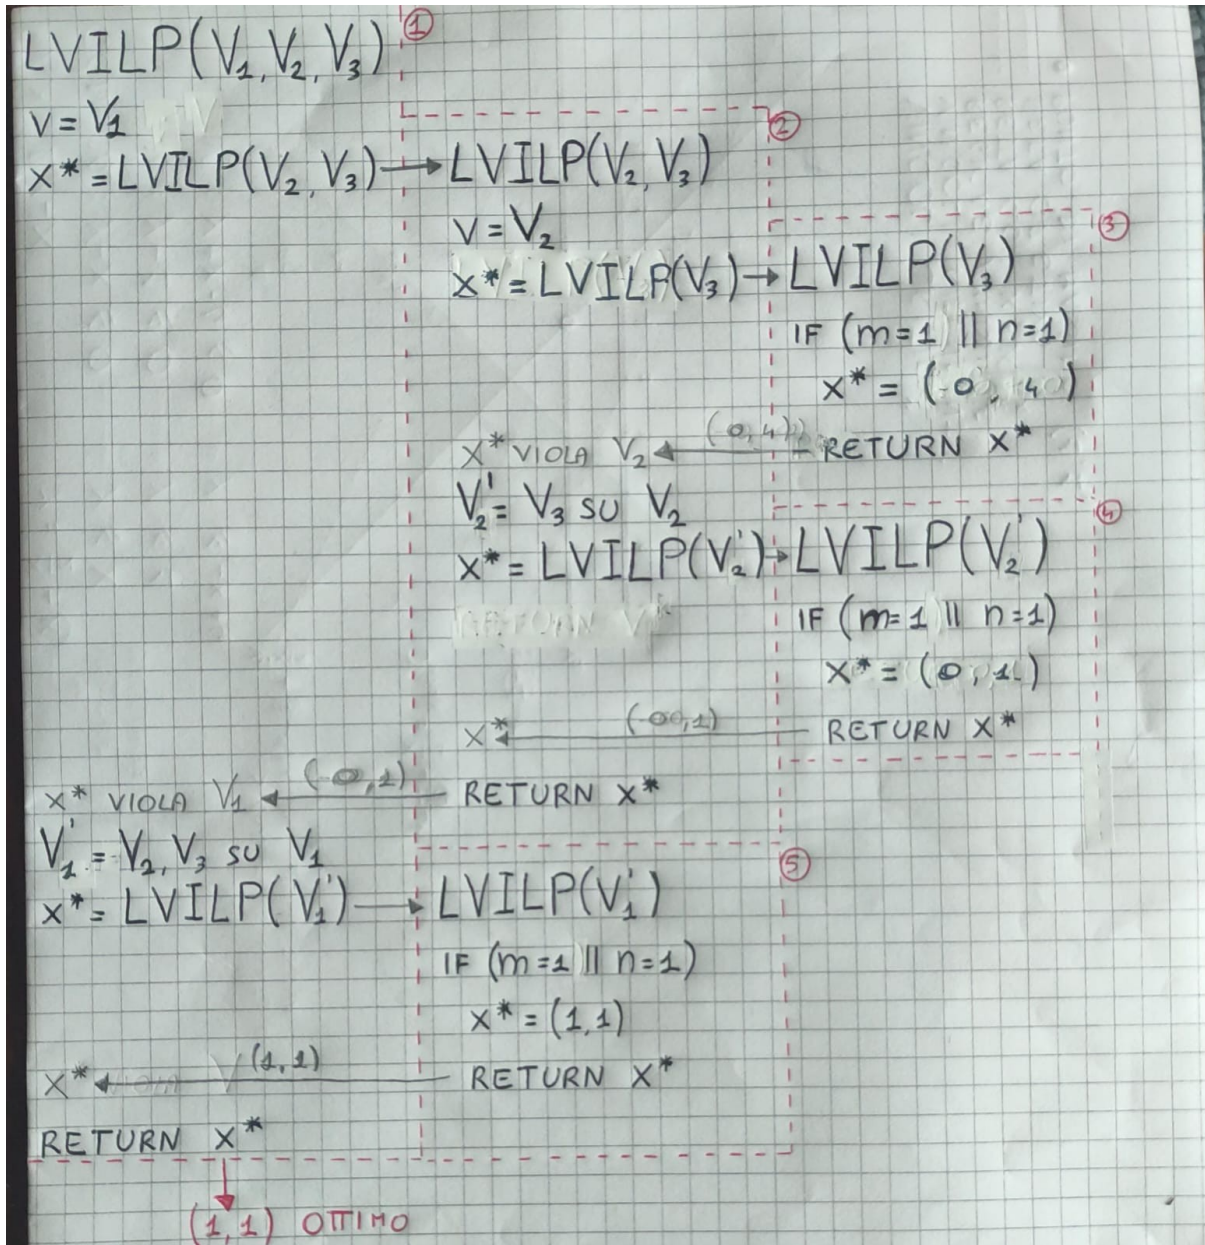 LVILP(V₁, V₂, V₃) ①
V = V₁
X* = LVILP(V₂, V₃) → LVILP(V₂, V₃) ②
V = V₂
X* = LVILP(V₃) → LVILP(V₃) ③
IF (m=1 || n=1)
X* = (0, 4)
X* VIOLA V₂ ← (0,4) RETURN X*
V₂' = V₃ SU V₂
X* = LVILP(V₂') → LVILP(V₂') ④
IF (m=1 || n=1)
X* = (0, 1)
X* ← RETURN X*
X* VIOLA V₁ ← RETURN X*
V₁' = V₂, V₃ SU V₁
X* = LVILP(V₁') → LVILP(V₁') ⑤
IF (m=1 || n=1)
X* = (1,1)
X* ← (1,1) RETURN X*
RETURN X*
(1,1) OTTIMO